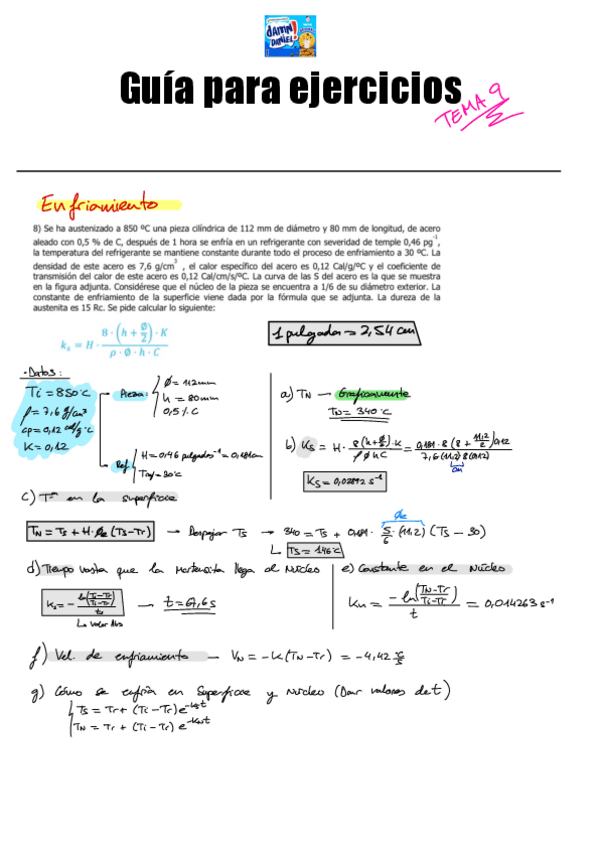 DAMN DANIEL!
Guía para ejercicios
TEMA 9
Enfriamiento
8) Se ha austenizado a 850 ºC una pieza cilíndrica de 112 mm de diámetro y 80 mm de longitud, de acero
aleado con 0,5 % de C, después de 1 hora se enfría en un refrigerante con severidad de temple 0,46 pg⁻¹,
la temperatura del refrigerante se mantiene constante durante todo el proceso de enfriamiento a 30 ºC. La
densidad de este acero es 7,6 g/cm³ , el calor específico del acero es 0,12 Cal/g/ºC y el coeficiente de
transmisión del calor de este acero es 0,12 Cal/cm/s/ºC. La curva de las S del acero es la que se muestra
en la figura adjunta. Considérese que el núcleo de la pieza se encuentra a 1/6 de su diámetro exterior. La
constante de enfriamiento de la superficie viene dada por la fórmula que se adjunta. La dureza de la
austenita es 15 Rc. Se pide calcular lo siguiente:
k_s = H · 8 · (h + Ø/2) · K / ρ · Ø · h · C
1 pulgada = 2,54 cm
· Datos:
Ti = 850ºC
ρ = 7,6 g/cm³
cp = 0,12 cal/g·ºC
K = 0,12
Pieza:
Ø = 112mm
h = 80mm
0,5 % C
Ref.
H = 0,46 pulgadas⁻¹ = 0,181cm
Tref = 30ºC
a) TN → Graficamente
TN = 340ºC
b) Ks = H · 8(h + Ø/2)·K / ρ Ø h C = 0,181 · 8 (8 + 11,2/2) 0,12 / 7,6 (11,2) 8 (0,12)
cm
Ks = 0,02892 s⁻¹
c) Tª en la superficie
TN = Ts + H · Øe (Ts - Tr) → Despejar Ts → 340 = Ts + 0,181 · 5/6 · (11,2) (Ts - 30)
Øe
Ts = 146ºC
d) Tiempo hasta que la martensita llega al núcleo
Ks = - ln(Ts-Tr / Ti-Tr) / ts → t = 67,6 s
La valor Abs
e) Constante en el núcleo
Kn = - ln(TN-Tr / Ti-Tr) / t = 0,014263 s⁻¹
f) Vel. de enfriamiento → VN = -K (TN - Tr) = -4,42 ºC/s
g) Cómo se enfría en superficie y núcleo (Dar valores de t)
Ts = Tr + (Ti - Tr) e^-kst
TN = Tr + (Ti - Tr) e^-knt